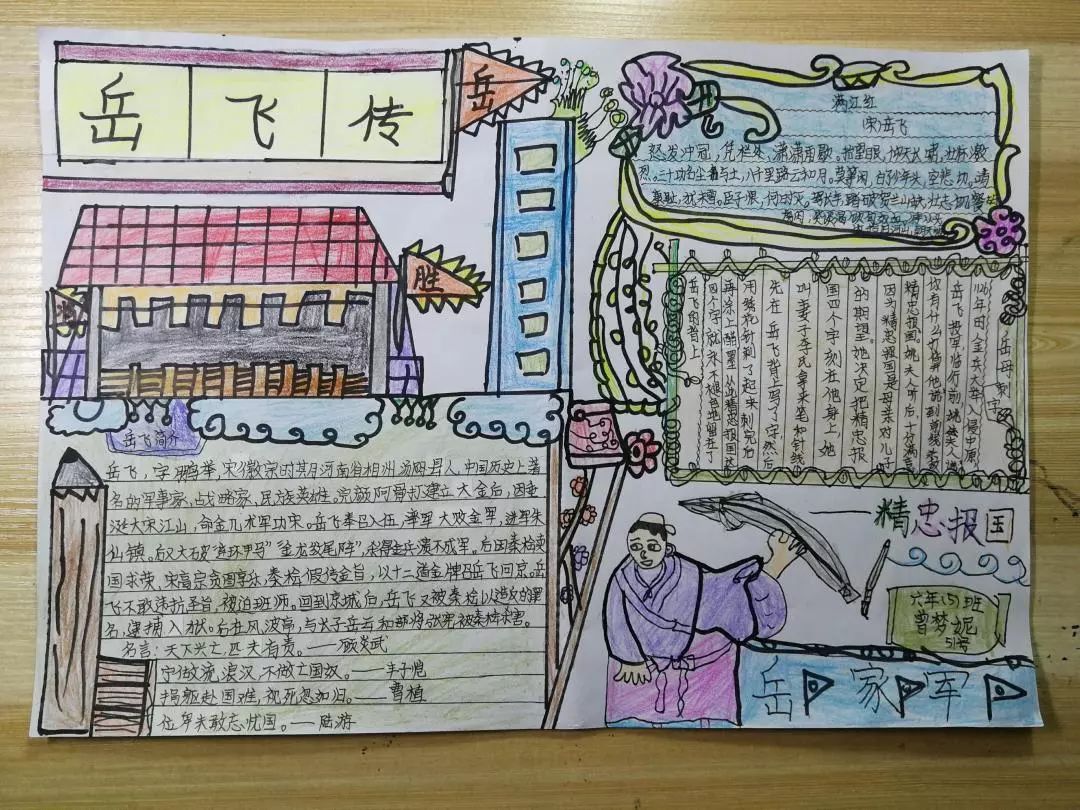 岳飞传
岳
胜
满江红
(宋)岳飞
怒发冲冠,凭栏处,潇潇雨歇。抬望眼,仰天长啸,壮怀激
烈。三十功名尘与土,八千里路云和月。莫等闲,白了少年头,空悲切。靖
康耻,犹未雪。臣子恨,何时灭。驾长车,踏破贺兰山缺。壮志
岳母刺字
岳飞投军临行前,姚夫人问
你有什么打算
精忠报国。姚夫人听后,十分满意
因为精忠报国是母亲对儿子
的期望。她决定把精忠报
国四个字刻在他身上。她
叫妻子李氏拿来笔和针线
先在岳飞背上写了字,然后
用绣花针刺了起来,刺完后
再涂一醋墨,从此精忠报国
四个字就永不褪色地留在了
岳飞的背上
岳飞简介
岳飞,字鹏举,宋徽宗时其月河南省相州汤阴县人,中国历史上著
名的军事家,战略家,民族英雄,完颜阿骨打建立大金后,因垂
涎大宋江山,命金兀术军功宋。岳飞奉召入伍,率军大败金军,进军朱
仙镇。后又大破"连环甲马""金龙绞尾阵",杀得金兵溃不成军。后因秦桧卖
国求荣,宋高宗贪图享乐,秦桧假传金旨,以十二道金牌召岳飞回京。岳
飞不敢违抗圣旨,被迫班师。回到京城后,岳飞又被秦桧以造反的罪
名,逮捕入狱。后在风波亭,与长子岳云和部将张宪被秦桧杀害。
名言:天下兴亡,匹夫有责。——顾炎武
宁做流浪汉,不做亡国奴。——丰子恺
捐躯赴国难,视死忽如归。——曹植
位卑未敢忘忧国。——陆游
——精忠报国
六年(5)班
曾梦妮
51号
岳家军